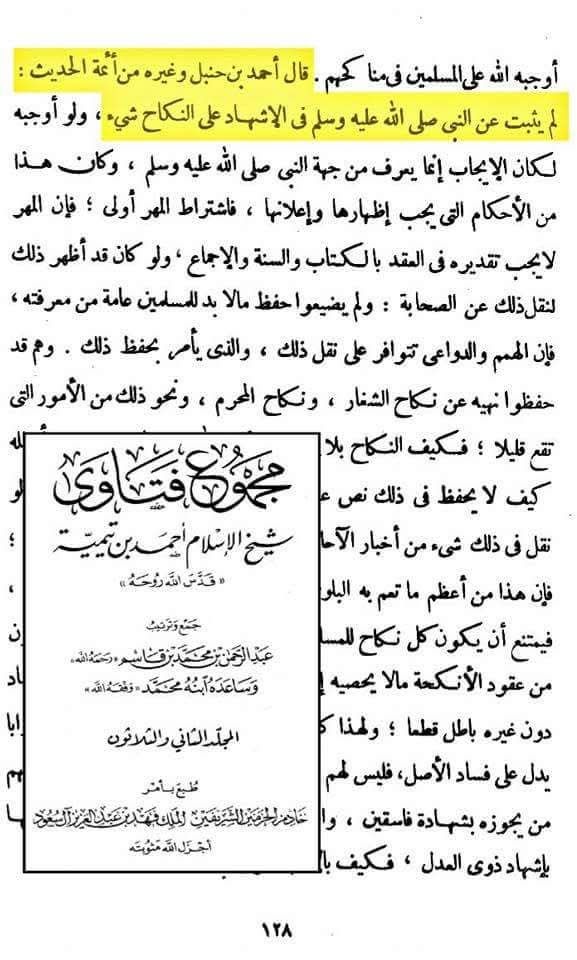 أوجبه الله على المسلمين فى مناكحهم . قال أحمد بن حنبل وغيره من أئمة الحديث :
لم يثبت عن النبى صلى الله عليه وسلم فى الإشهاد على النكاح شىء ، ولو أوجبه
لكان الإيجاب إنما يعرف من جهة النبى صلى الله عليه وسلم ، وكان هذا
من الأحكام التى يجب إظهارها وإعلانها ، فاشتراط المهر أولى ؛ فإن المهر
لا يجب تقديره فى العقد بالكتاب والسنة والإجماع ، ولو كان قد أظهر ذلك
لنقل ذلك عن الصحابة : ولم يضيعوا حفظ مالا بد للمسلمين عامة من معرفته ،
فإن الهمم والدواعى تتوافر على نقل ذلك ، والذى يأمر بحفظ ذلك . وهم قد
حفظوا نهيه عن نكاح الشغار ، ونكاح المحرم ، ونحو ذلك من الأمور التى
تقع قليلا ؛ فكيف النكاح بلا
كيف لا يحفظ فى ذلك نص
نقل فى ذلك شىء من أخبار
فإن هذا من أعظم ما تعم به
فيمتنع أن يكون كل نكاح
من عقود الأنكحة مالا يحصيه
دون غيره باطل قطعا ؛ ولهذا
يدل على فساد الأصل، فليس لهم
من يجوزه بشهادة فاسقين ،
بإشهاد ذوى العدل ، فكيف
مجموع فتاوى
شيخ الإسلام أحمد بن تيمية
« قدّس الله روحه »
جمع وترتيب
عبد الرحمن بن محمد بن قاسم « رحمه الله »
وساعده ابنه محمد « وفقه الله »
المجلد الثاني والثلاثون
طبع بأمر
خادم الحرمين الشريفين الملك فهد بن عبد العزيز آل سعود
أجزل الله مثوبته
١٢٨